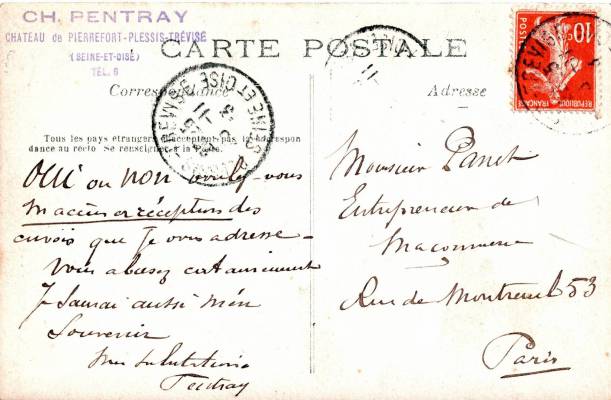 CH. PENTRAY
CHATEAU de PIERREFORT-PLESSIS-TRÉVISE
(SEINE-ET-OISE)
TEL. 6
CARTE POSTALE
Correspondance
Adresse
Tous les pays étrangers n'acceptent pas la correspondance au recto Se renseigner à la Poste.
OUI ou NON voulez-vous
m'accuser réception des
envois que je vous adresse -
Vous abusez certainement
Je saurai aussi m'en
Souvenir
Mes Salutations
Pentray
Monsieur Panet
Entrepreneur de
Maconnerie
Rue de Montreuil 53
Paris
10c
POSTES
REPUBLIQUE FRANÇAISE
SEINE ET OISE
11